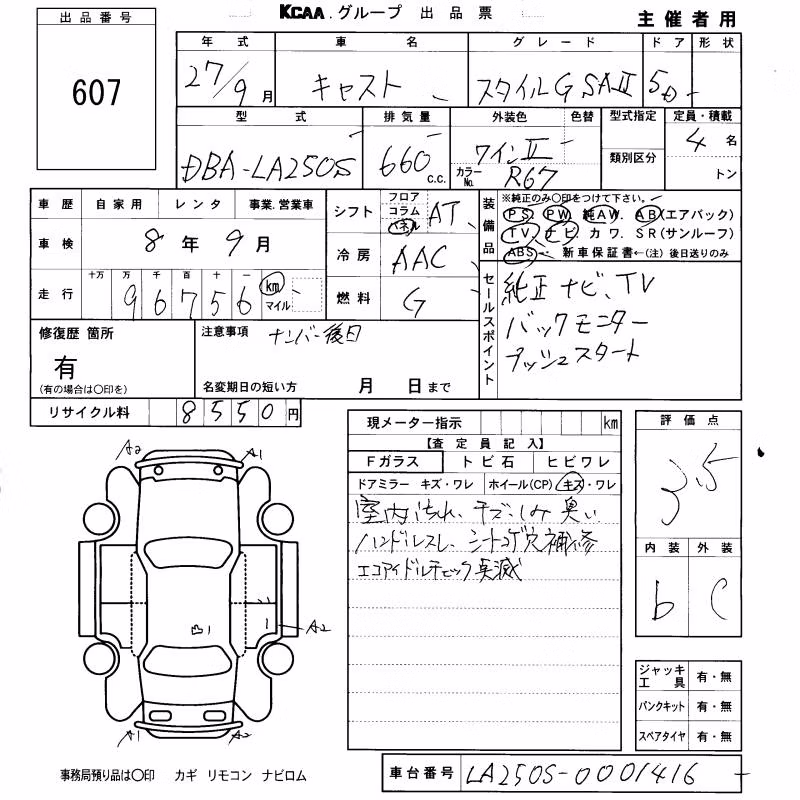 出品番号
607
KCAA.グループ 出品票
主催者用
年式 車名 グレード ドア 形状
27/9月 キャスト スタイルG SAⅡ 5D
型式 排気量 外装色 色替 型式指定 定員・積載
DBA-LA250S 660 c.c. ワインⅡ 4名
カラーNo. R67 類別区分 トン
車歴 自家用 レンタ 事業.営業車
車検 8年9月
走行 十万 万 千 百 十 一
96756 km マイル
シフト フロア コラム パネル AT
冷房 AAC
燃料 G
装備品 ※純正のみ〇印をつけて下さい。
PS. PW. 純AW. AB(エアバック)
TV. ナビ カワ. SR(サンルーフ)
ABS 新車保証書←(注)後日送りのみ
セールスポイント
純正ナビ、TV
バックモニター
プッシュスタート
修復歴 箇所
有
(有の場合は〇印を)
注意事項 ナンバー後日
名変期日の短い方 月 日まで
リサイクル料 8550円
現メーター指示 km
【査定員記入】
Fガラス トビ石 ヒビワレ
ドアミラー キズ・ワレ ホイール(CP) キズ・ワレ
室内汚れ、キズ、しみ 臭い
ハンドルスレ、シートコゲ穴補修
エコアイドルチェック点滅
評価点
3.5
内装 外装
b C
A2 A1
凸1
A2
A1
A2
ジャッキ工具 有・無
パンクキット 有・無
スペアタイヤ 有・無
事務局預り品は〇印 カギ リモコン ナビロム
車台番号 LA250S-0001416